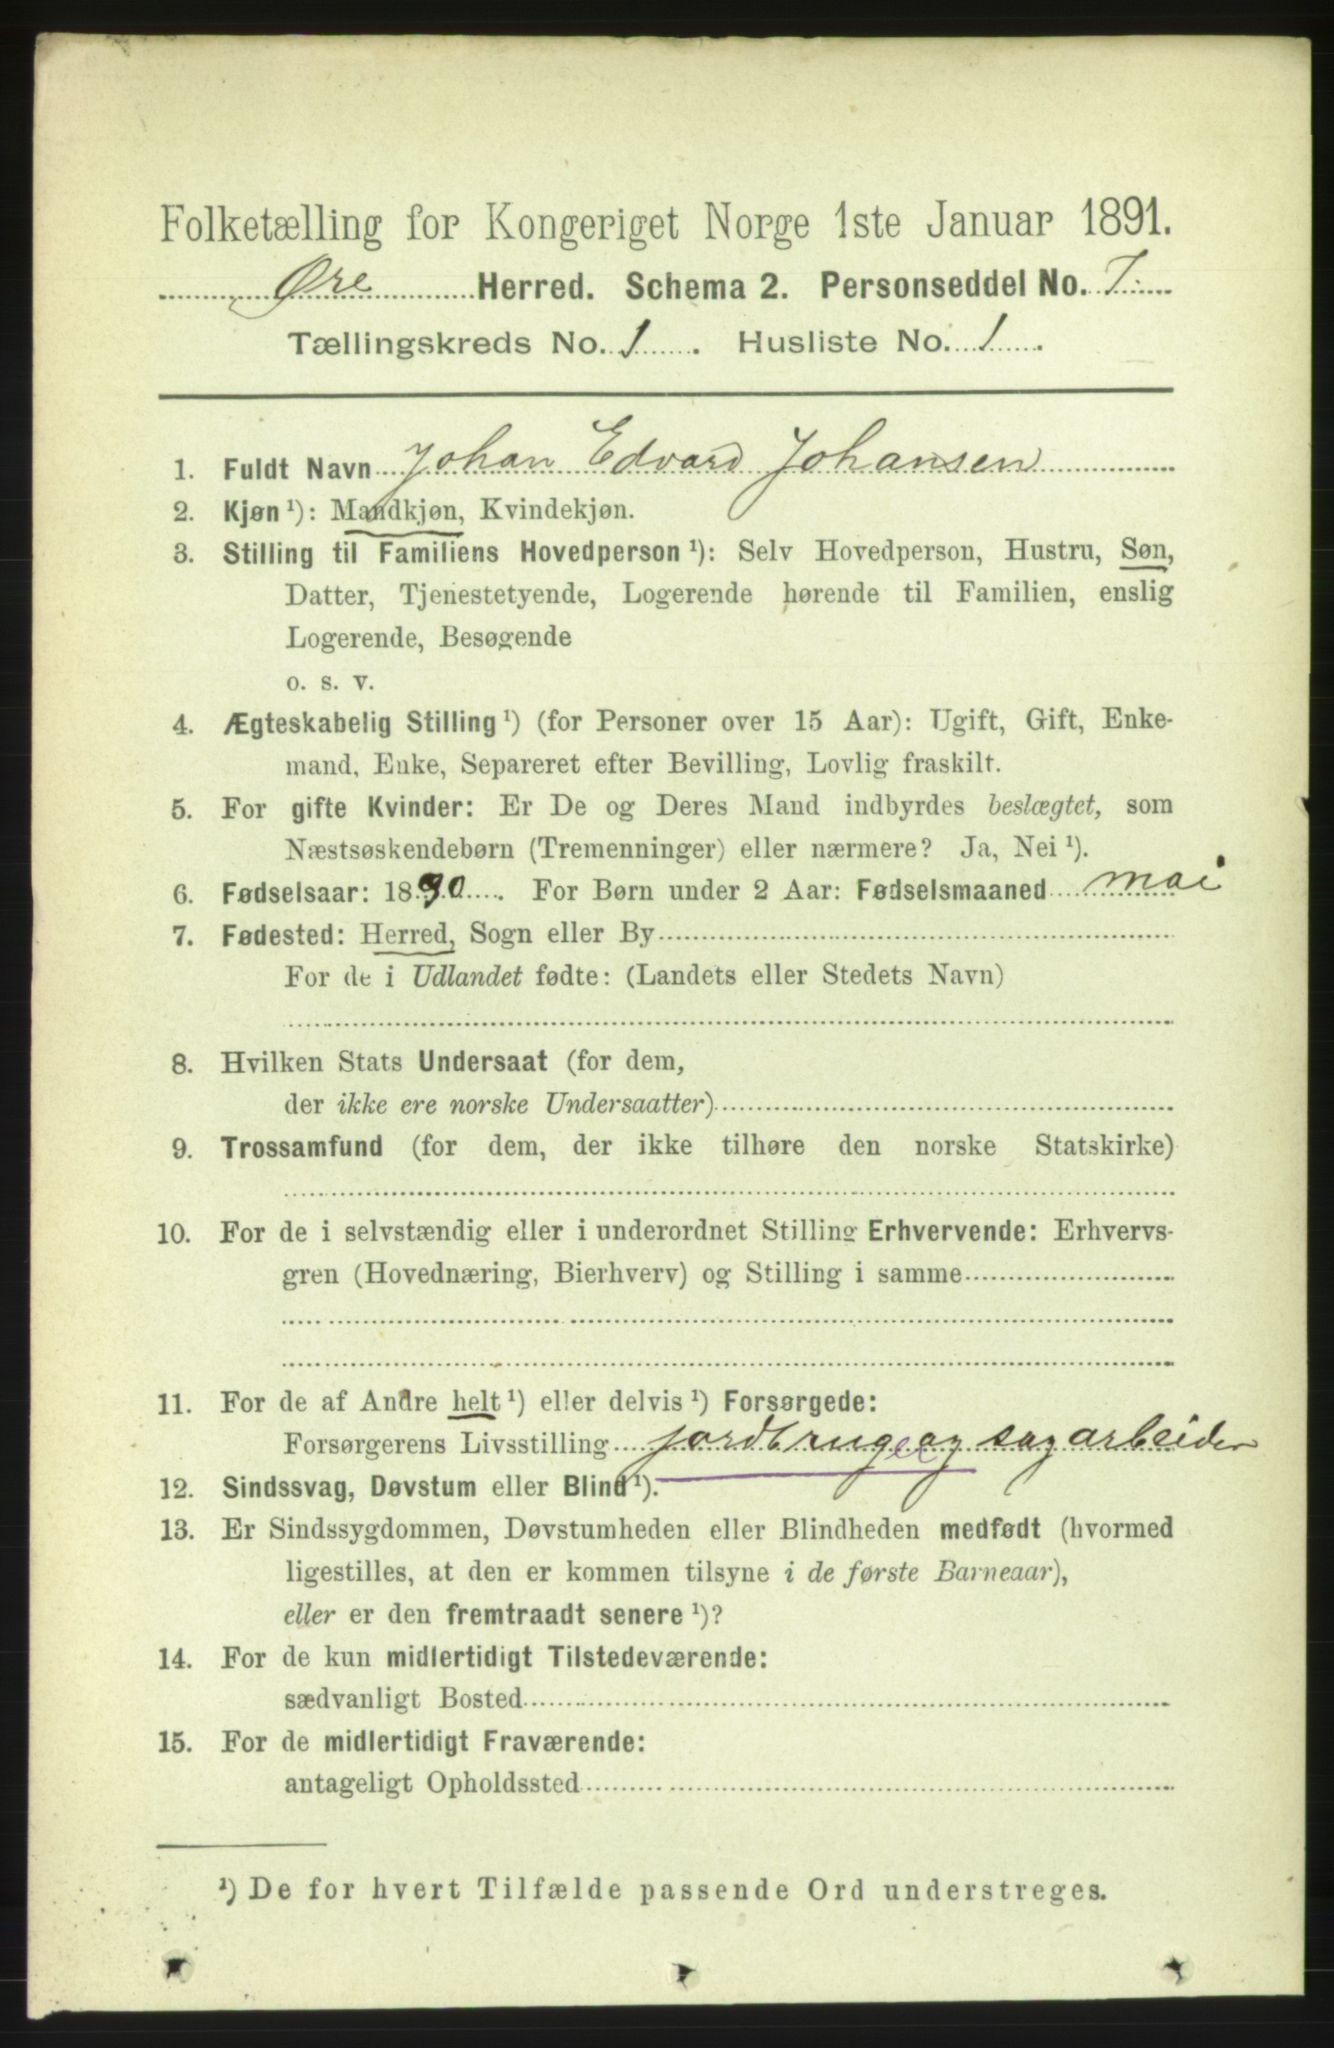 Folketælling for Kongeriget Norge 1ste Januar 1891.
Øre Herred. Schema 2. Personseddel No. 7
Tællingskreds No. 1. Husliste No. 1.
1. Fuldt Navn Johan Edvard Johansen
2. Kjøn ¹): Mandkjøn, Kvindekjøn.
3. Stilling til Familiens Hovedperson ¹): Selv Hovedperson, Hustru, Søn,
Datter, Tjenestetyende, Logerende hørende til Familien, enslig
Logerende, Besøgende
o. s. v.
4. Ægteskabelig Stilling ¹) (for Personer over 15 Aar): Ugift, Gift, Enke-
mand, Enke, Separeret efter Bevilling, Lovlig fraskilt.
5. For gifte Kvinder: Er De og Deres Mand indbyrdes beslægtet, som
Næstsøskendebørn (Tremenninger) eller nærmere? Ja, Nei ¹).
6. Fødselsaar: 1890. For Børn under 2 Aar: Fødselsmaaned mai
7. Fødested: Herred, Sogn eller By
For de i Udlandet fødte: (Landets eller Stedets Navn)
8. Hvilken Stats Undersaat (for dem,
der ikke ere norske Undersaatter)
9. Trossamfund (for dem, der ikke tilhøre den norske Statskirke)
10. For de i selvstændig eller i underordnet Stilling Erhvervende: Erhvervs-
gren (Hovednæring, Bierhverv) og Stilling i samme
11. For de af Andre helt ¹) eller delvis ¹) Forsørgede:
Forsørgerens Livsstilling jordbruger og sagarbeider
12. Sindssvag, Døvstum eller Blind ¹).
13. Er Sindssygdommen, Døvstumheden eller Blindheden medfødt (hvormed
ligestilles, at den er kommen tilsyne i de første Barneaar),
eller er den fremtraadt senere ¹)?
14. For de kun midlertidigt Tilstedeværende:
sædvanligt Bosted
15. For de midlertidigt Fraværende:
antageligt Opholdssted
¹) De for hvert Tilfælde passende Ord understreges.